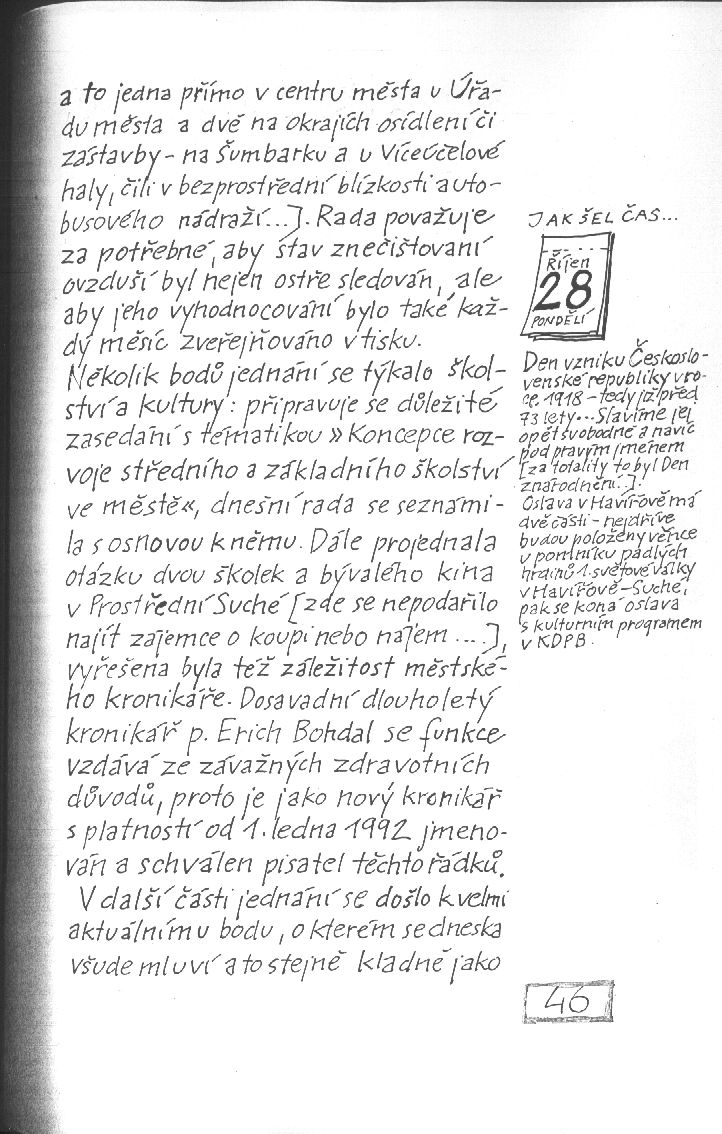 a to jedna přímo v centru města u Úřa-
du města a dvě na okrajích osídlení či
zástavby - na Šumbarku a u Víceúčelové
haly, čili v bezprostřední blízkosti auto-
busového nádraží...]. Rada považuje
za potřebné, aby stav znečišťovaní
ovzduší byl nejen ostře sledován, ale
aby jeho vyhodnocování bylo také kaž-
dý měsíc zveřejňováno v tisku.
Několik bodů jednání se týkalo škol-
ství a kultury: připravuje se důležité
zasedání s tématikou »Koncepce roz-
voje středního a základního školství
ve městě«, dnešní rada se seznámi-
la s osnovou k němu. Dále projednala
otázku dvou školek a bývalého kina
v Prostřední Suché [zde se nepodařilo
najít zájemce o koupi nebo nájem ...],
vyřešena byla též záležitost městské-
ho kronikáře. Dosavadní dlouholetý
kronikář p. Erich Bohdal se funkce
vzdává ze závažných zdravotních
důvodů, proto je jako nový kronikář
s platností od 1. ledna 1992 jmeno-
ván a schválen pisatel těchto řádků.
V další části jednání se došlo k velmi
aktuálnímu bodu, o kterém se dneska
všude mluví a to stejně kladně jako
JAK ŠEL ČAS...
Říjen
28
PONDĚLÍ
Den vzniku Českoslo-
venské republiky v ro-
ce 1918 - tedy již před
73 lety... Slavíme jej
opět svobodně a navíc
pod pravým jménem
[za totality to byl Den
znárodnění...].
Oslava v Havířově má
dvě části - nejdříve
budou položeny věnce
u pomníku padlých
hrdinů 1. světové války
v Havířově-Suché,
pak se koná oslava
s kulturním programem
v KDPB.
46